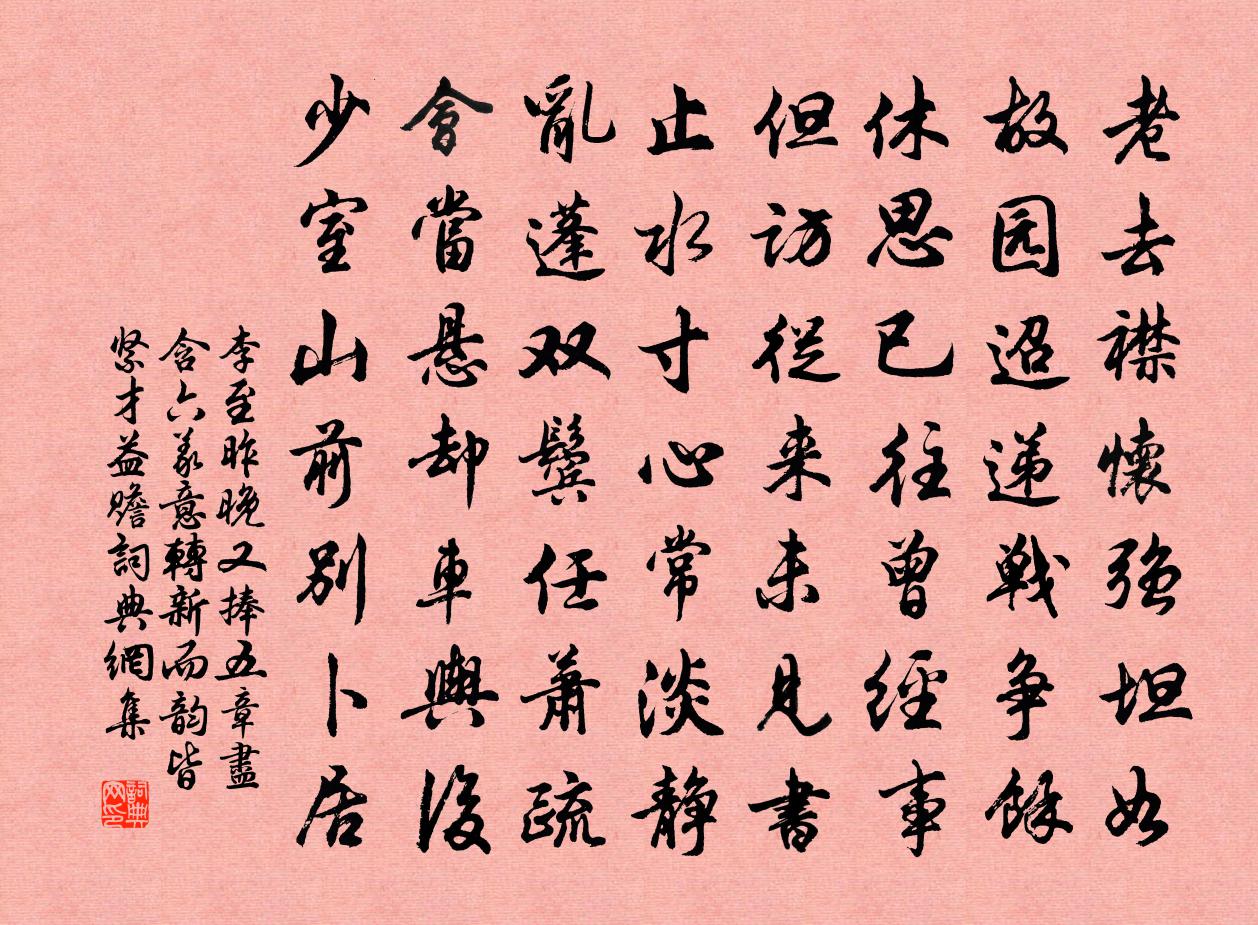 老去襟懷強坦如
故园迢递戰争餘
休思已往曾經事
但访從来未見書
止水寸心常淡静
亂蓬双鬓任蕭疏
會當悬却車輿後
少室山前别卜居
李至昨晚又捧五章盡
含六义意轉新而韵皆
紧才益赡詞典網集
詞典网印